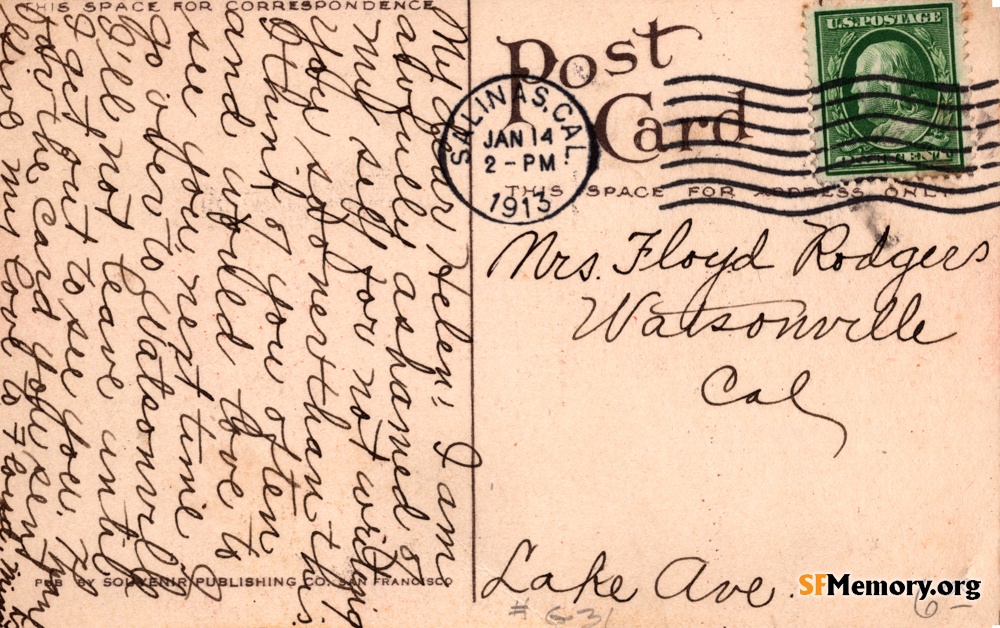 THIS SPACE FOR CORRESPONDENCE
My dear Helen: I am
awfully ashamed of
my self for not writing
you sooner than this
I think of you often
and would love to
see you, next time I
go over to Watsonville
I'll not leave until
I get out to see you. Thank
for the card you sent
Give my love to Floyd
PUB BY SOUVENIR PUBLISHING CO. SAN FRANCISCO
Post
Card
THIS SPACE FOR ADDRESS ONLY
SALINAS, CAL.
JAN 14
2-PM
1913
U.S. POSTAGE
CENT
Mrs. Floyd Rodgers
Watsonville
Cal
Lake Ave.
# 631
6-
SFMemory.org